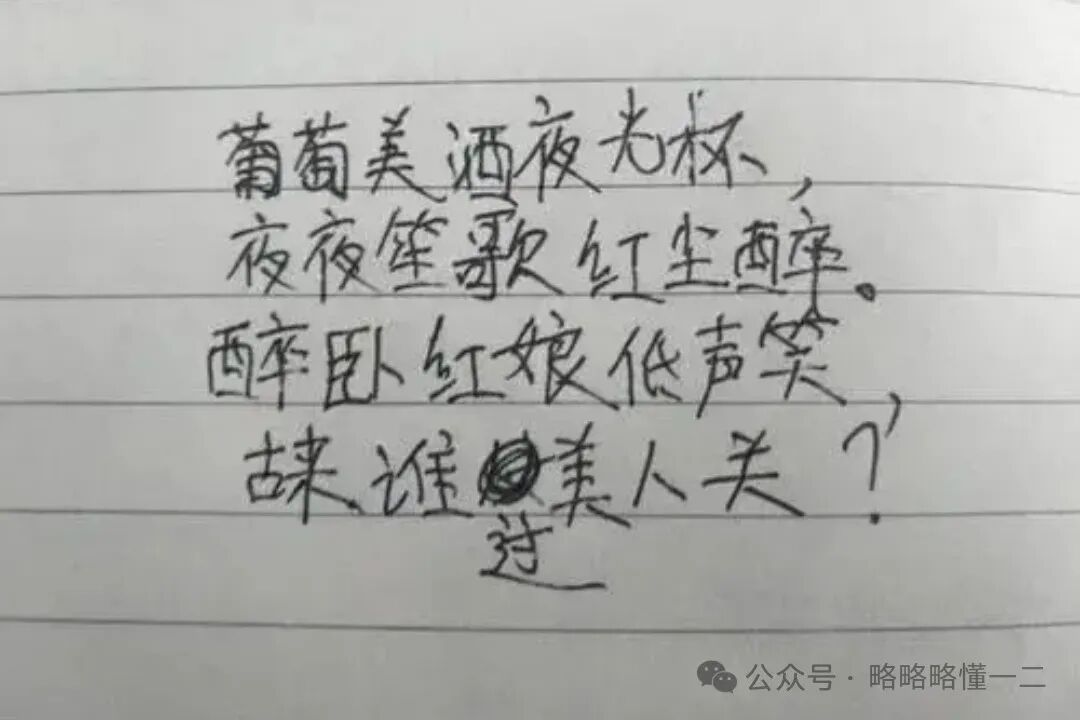 葡萄美酒夜光杯，
夜夜笙歌红尘醉。
醉卧红娘低声笑，
古来谁过美人头？
公众号·略略略懂一二